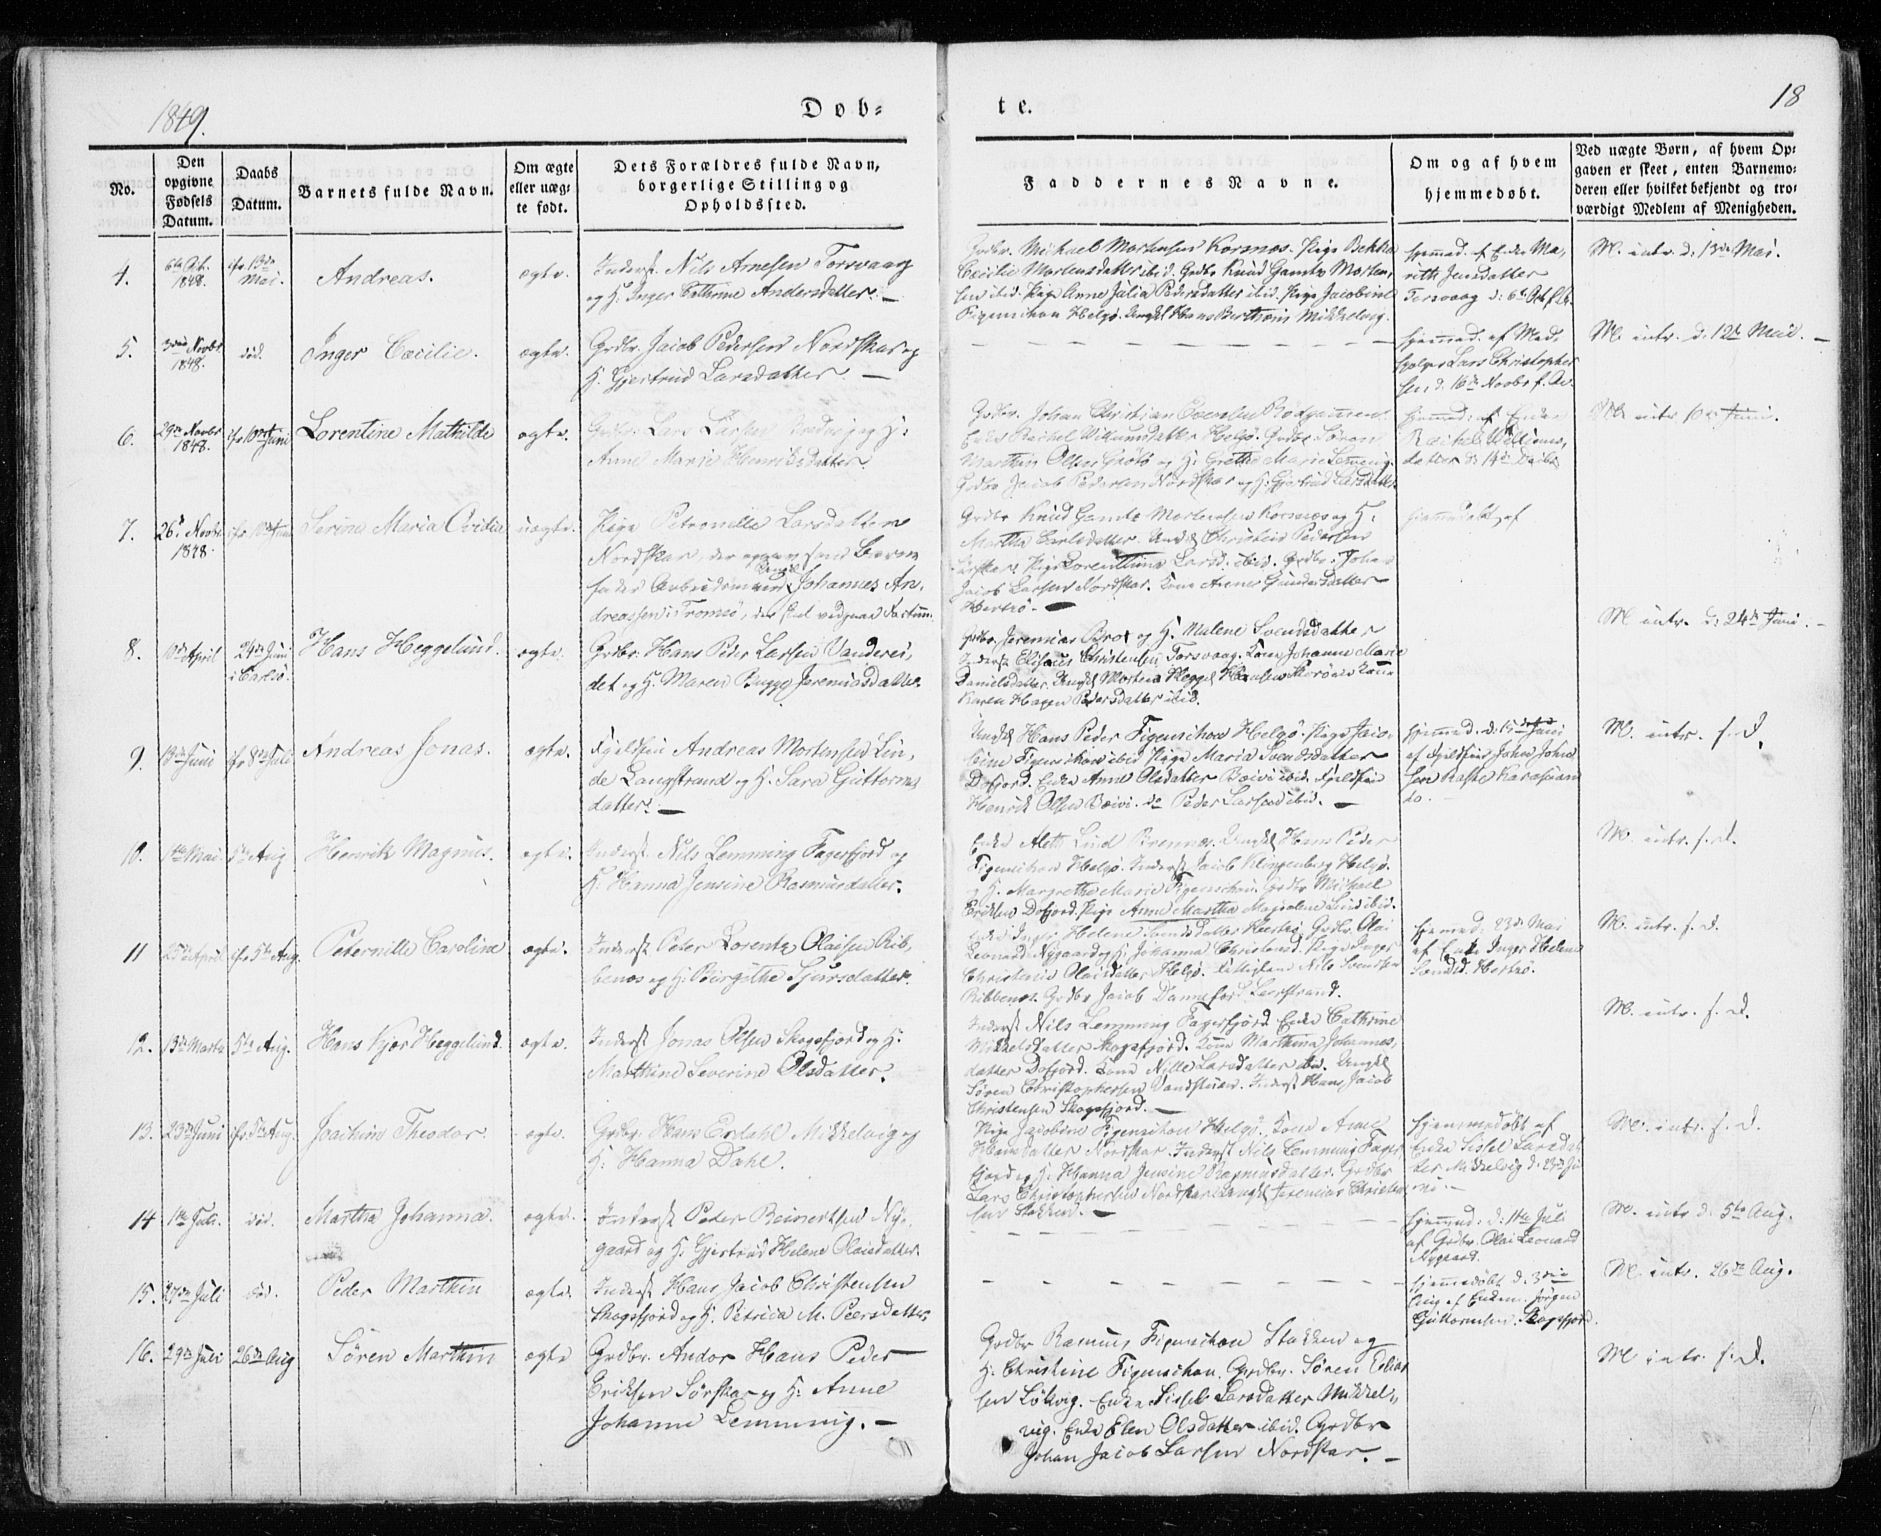 1849.
Dob=
te.
18
No.
Den opgivne Fødsels Datum.
Daabs Datum.
Barnets fulde Navn.
Om ægte eller uægte født.
Dets Forældres fulde Navn, borgerlige Stilling og Opholdssted.
Faddernes Navne.
Om og af hvem hjemmedøbt.
Ved uægte Børn, af hvem Opgaven er skeet, enten Barnemoderen eller hvilket bekjendt og troværdigt Medlem af Menigheden.
4.
1848.
13de Mai.
Andreas.
ægte.
Inderst Nils Arnesen Torsvaag
og H. Inger Cathrine Andersdatter. —
Grdbr. Michael Mortensen Kornæs. Pige
Cecilie Mortensdatter ibid. Grdbr Knud Gamts Morten,
sen ibid. Pige Anne Julia Pedersdatter ibid. Pige Jacobine
Figenschou Helgø. Ungk Hans Mikkelvig.
Hjemmed. af Enke Ma,
rith Jensdatter
Torsvaag d: 6te
M. intr. d. 13de Mai.
5.
3die Novbr
1848.
død.
Inger Cæcilie.
ægte.
Grdbr. Jacob Pedersen Nordskar og
H. Gjertrud Larsdatter. —
Hjemmed. af Med,
hjelper Lars Christopher
sen d. 16de Novbr f. A.
M. intr. d. 12te Mai. —
6.
29de Novbr
1848.
10de Juni
Lorentine Mathilde
ægte.
Grdbr. Lars Larsen og H:
Anne Marie Henriksdatter.
Grdbr. Johan Christian
Enke Rachel Willumsdatter Helgø. Grdbr Søren
Marthin Olsen Grøtø og H. Grethe Marie Lemming.
Grdbr Jacob Pedersen Nordskar og H. Gjertrud Larsdatter
Hjemmed. af Enke
Rachel Willums,
datter d: 14de Decbr
M. intr 10de Juni.
7.
26de Novbr
1848.
Serine Maria Cecilie
uægte.
Pige Petronelle Larsdatter
Nordskar, der opgav som Barne
fader Arbeidsmand Ungk. Johannes An,
dreassen i Tromsø, der skal vedgaae Factum.
Grdbr Knud Gamts Mortensen Kornæs og H:
Martha Carlsdatter. Ungk Christen Pedersen
Pige Lorenthine Larsd. ibid. Grdbr. Johan
Jacob Larsen Nordskar. Kone Arene Gundersdatter
Hjemmedøbt af
8.
April
24de Juni
i Carlsø.
Hans Heggelund.
ægte.
Grdbr. Hans Peder Larsen Vanderei,
det og H. Maren Bugge Jeremiasdatter.
Grdbr. Jeremias Brox og H. Malene Svendsdatter
Inderst Christensen Torsvaag. Kone Johanne Marie
Danielsdatter. Ungk Morten Hegge Hansen Kone
Karen Hagen Pedersdatter ibid.
M intr. d: 24de Juni. —
9.
13de Juni
8de Juli
Andreas Jonas.
ægte.
Fjeldfin Andreas Mortensen Lin,
de Langstrand og H. Sara Guttorms
datter. —
Ungk Hans Peder Figenschou Helgø. Pige Jaco
bine Figenschou ibid. Pige Maria Svendsdatter
Dofjord. Enke Anne Olsdatter Bæivi ibid. Fjeldfin
Henrik Olsen Bæivi. do Peder Larsen ibid. —
Hjemmed. d. 15de Juni
af Fjeldfin John John
sen Karasuan
do. —
M. intr. s. D.
10.
1ste Mai.
5te Aug
Henrik Magnus.
ægte.
Inderst Nils Lemming Fagerfjord og
H. Hanna Jensine Rasmusdatter.
Enke Aleth Lind Brennæs. Ungk Hans Peder
Figenschou Helgø. Inderst Jacob Klingenberg Helgø.
og H. Margrethe Marie Figenschou. Grdbr Michael
Eriksen Dofjord. Pige Anne Martha Magdalene Lind ibid.
M. intr. s. D.
11
25de April.
5te Aug.
Peternille Caroline
ægte.
Inderst Peter Lorentz Olaisen Rib,
benæs og H. Birgithe Sjursdatter.
Enke Inger Helene Grdbr. Olai
Leonard Nygaard og H. Johanna Christensd. Pige Inger
Christine Olaisdatter Helgø. Nils Svendsen
Ribbenæs. Grdbr Jacob Dannefjord Leirstrand.
Hjemmed: 23de Mai
af Enke Inger Helene
M. intr. s. D.
12.
13de Marts
5te Aug.
Hans Kjær Heggelund.
ægte.
Inderst Jonas Olsen Skogsfjord og H.
Marthine Severine Olsdatter.
Inderst Nils Lemming Fagerfjord. Enke Cathrine
Mikkelsdatter Skogsfjord. Kone Marthina Johannes,
datter Dofjord. Kone Nille Larsdatter ibid. Ungk
Søren Christophersen Vandstuen. Inderst Hans Jacob
Christensen Skogsfjord. —
M. intr. s. D.
13.
23de Juni
5te Aug.
Joachim Theodor.
ægte.
Grdbr. Hans Erdahl Mikkelvig og
H. Hanna Dahl.
Pige Jacobine Figenschou Helgø. Kone Anne
Hansdatter Nordskar. Inderst Nils Lemming Fager
fjord og H. Hanna Jensine Rasmusdatter. Grdbr
Lars Christophersen Nordskar. Ungk Jeremias Christen
sen Stakken. —
Hjemmedøbt af
Enke Sissel Larsdat
ter Mikkelvig d. 23de Ju
ni. —
M. intr. s. D.
14
1ste Juli.
død.
Martha Johanna.
ægte.
Inderst Peder Reinertsen Ny,
gaard og H. Gjertrud Helene Olaisdatter.
Hjemmed: d: 11te Juli
af Grdbr. Olai Leonard
Nygaard.
M. intr d: 5te Aug.
15.
27de Juli
død.
Peder Marthin
ægte.
Inderst Hans Jacob Christensen
Skogsfjord og H. Petrica M. Peersdatter.
Hjemmedøbt d. 3die
Aug af Enkem. Jørgen
Guttormsen Skogsfjord.
M. intr. 26de Aug.
16.
29de Juli
26de Aug
Søren Marthin
ægte
Grdbr. Andor Hans Peder
Eriksen Sørskar og H. Anne
Johanne Lemming. —
Grdbr Rasmus Figenschou Stakken og
H. Christine Figenschou. Grdbr. Søren Elias
sen Løkvig. Enke Sissel Larsdatter Mikkel,
vig. Enke Elen Olsdatter ibid. Grdbr
Johan Jacob Larsen Nordskar. —
M intr. s. D.